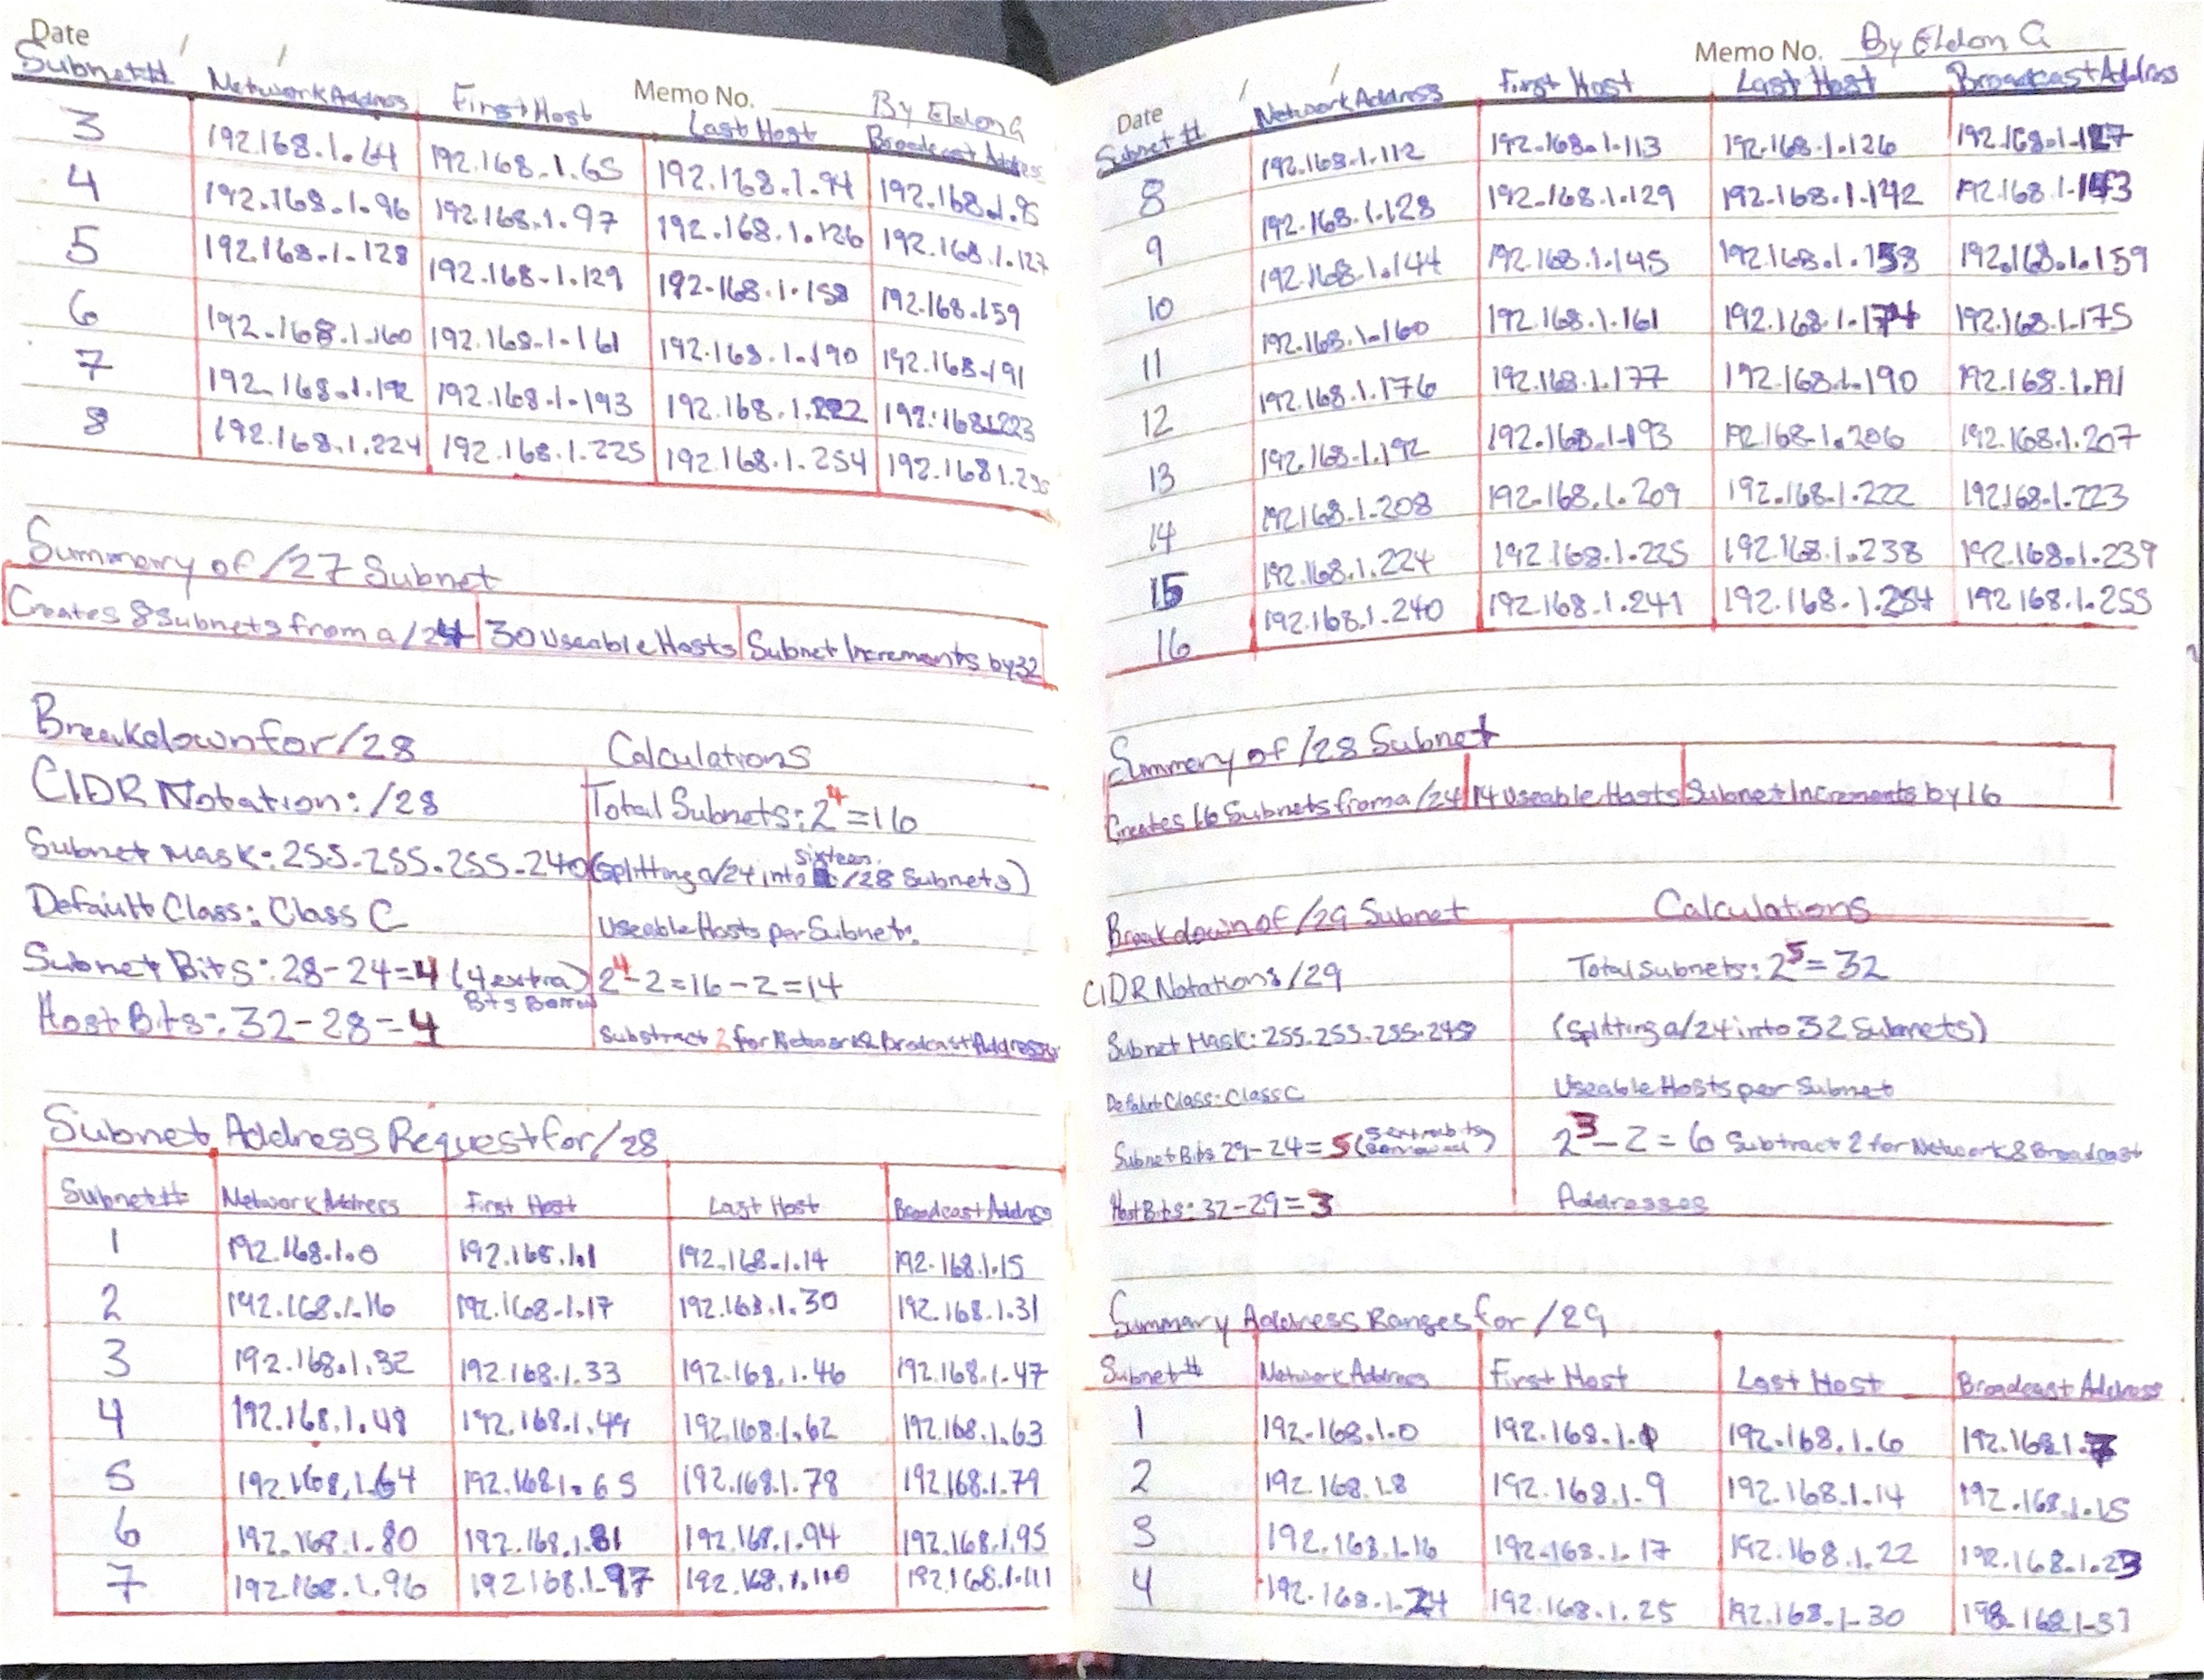 Date / /
Memo No. By Eldon G
Subnet# Network Address First Host Last Host Broadcast Address
3 192.168.1.64 192.168.1.65 192.168.1.94 192.168.1.95
4 192.168.1.96 192.168.1.97 192.168.1.126 192.168.1.127
5 192.168.1.128 192.168.1.129 192.168.1.158 192.168.159
6 192.168.1.160 192.168.1.161 192.168.1.190 192.168.191
7 192.168.1.192 192.168.1.193 192.168.1.222 192.168.1.223
8 192.168.1.224 192.168.1.225 192.168.1.254 192.168 1.255
Summary of /27 Subnet
Creates 8 Subnets from a /24 30 Useable Hosts Subnet Increments by 32
Breakdown for /28 Calculations
CIDR Notation: /28 Total Subnets: 2^4 = 16
Subnet Mask: 255.255.255.240 (Splitting a /24 into sixteen /28 Subnets)
Default Class: Class C Useable Hosts per Subnet:
Subnet Bits: 28-24=4 (4 extra Bits Borrowed) 2^4-2=16-2=14
Host Bits: 32-28=4 Substract 2 for Network & Brodcast Addresses
Subnet Address Request for /28
Subnet# Network Address First Host Last Host Broadcast Address
1 192.168.1.0 192.168.1.1 192.168.1.14 192.168.1.15
2 192.168.1.16 192.168.1.17 192.168.1.30 192.168.1.31
3 192.168.1.32 192.168.1.33 192.168.1.46 192.168.1.47
4 192.168.1.48 192.168.1.49 192.168.1.62 192.168.1.63
5 192.168.1.64 192.168.1.65 192.168.1.78 192.168.1.79
6 192.168.1.80 192.168.1.81 192.168.1.94 192.168.1.95
7 192.168.1.96 192.168.1.97 192.168.1.110 192.168.1.111
Memo No. By Eldon G
Date / /
Subnet # Network Address First Host Last Host Broadcast Address
8 192.168.1.112 192.168.1.113 192.168.1.126 192.168.1.127
9 192.168.1.128 192.168.1.129 192.168.1.142 192.168.1.143
10 192.168.1.144 192.168.1.145 192.168.1.158 192.168.1.159
11 192.168.1.160 192.168.1.161 192.168.1.174 192.168.1.175
12 192.168.1.176 192.168.1.177 192.168.1.190 192.168.1.191
13 192.168.1.192 192.168.1.193 192.168.1.206 192.168.1.207
14 192.168.1.208 192.168.1.209 192.168.1.222 192.168.1.223
15 192.168.1.224 192.168.1.225 192.168.1.238 192.168.1.239
16 192.168.1.240 192.168.1.241 192.168.1.254 192.168.1.255
Summery of /28 Subnet
Creates 16 Subnets from a /24 14 Useable Hosts Subnet Increments by 16
Breakdown of /29 Subnet Calculations
CIDR Notations /29 Total Subnets: 2^5 = 32
Subnet Mask: 255.255.255.248 (Splitting a /24 into 32 Subnets)
Default Class: Class C Useable Hosts per Subnet
Subnet Bits 29-24=5 (5 extra bits borrowed) 2^3-2=6 Subtract 2 for Network & Broadcast
Host Bits: 32-29=3 Addresses
Summary Address Ranges for /29
Subnet# Network Address First Host Last Host Broadcast Address
1 192.168.1.0 192.168.1.1 192.168.1.6 192.168.1.7
2 192.168.1.8 192.168.1.9 192.168.1.14 192.168.1.15
3 192.168.1.16 192.168.1.17 192.168.1.22 192.168.1.23
4 192.168.1.24 192.168.1.25 192.168.1.30 198.168.1.31